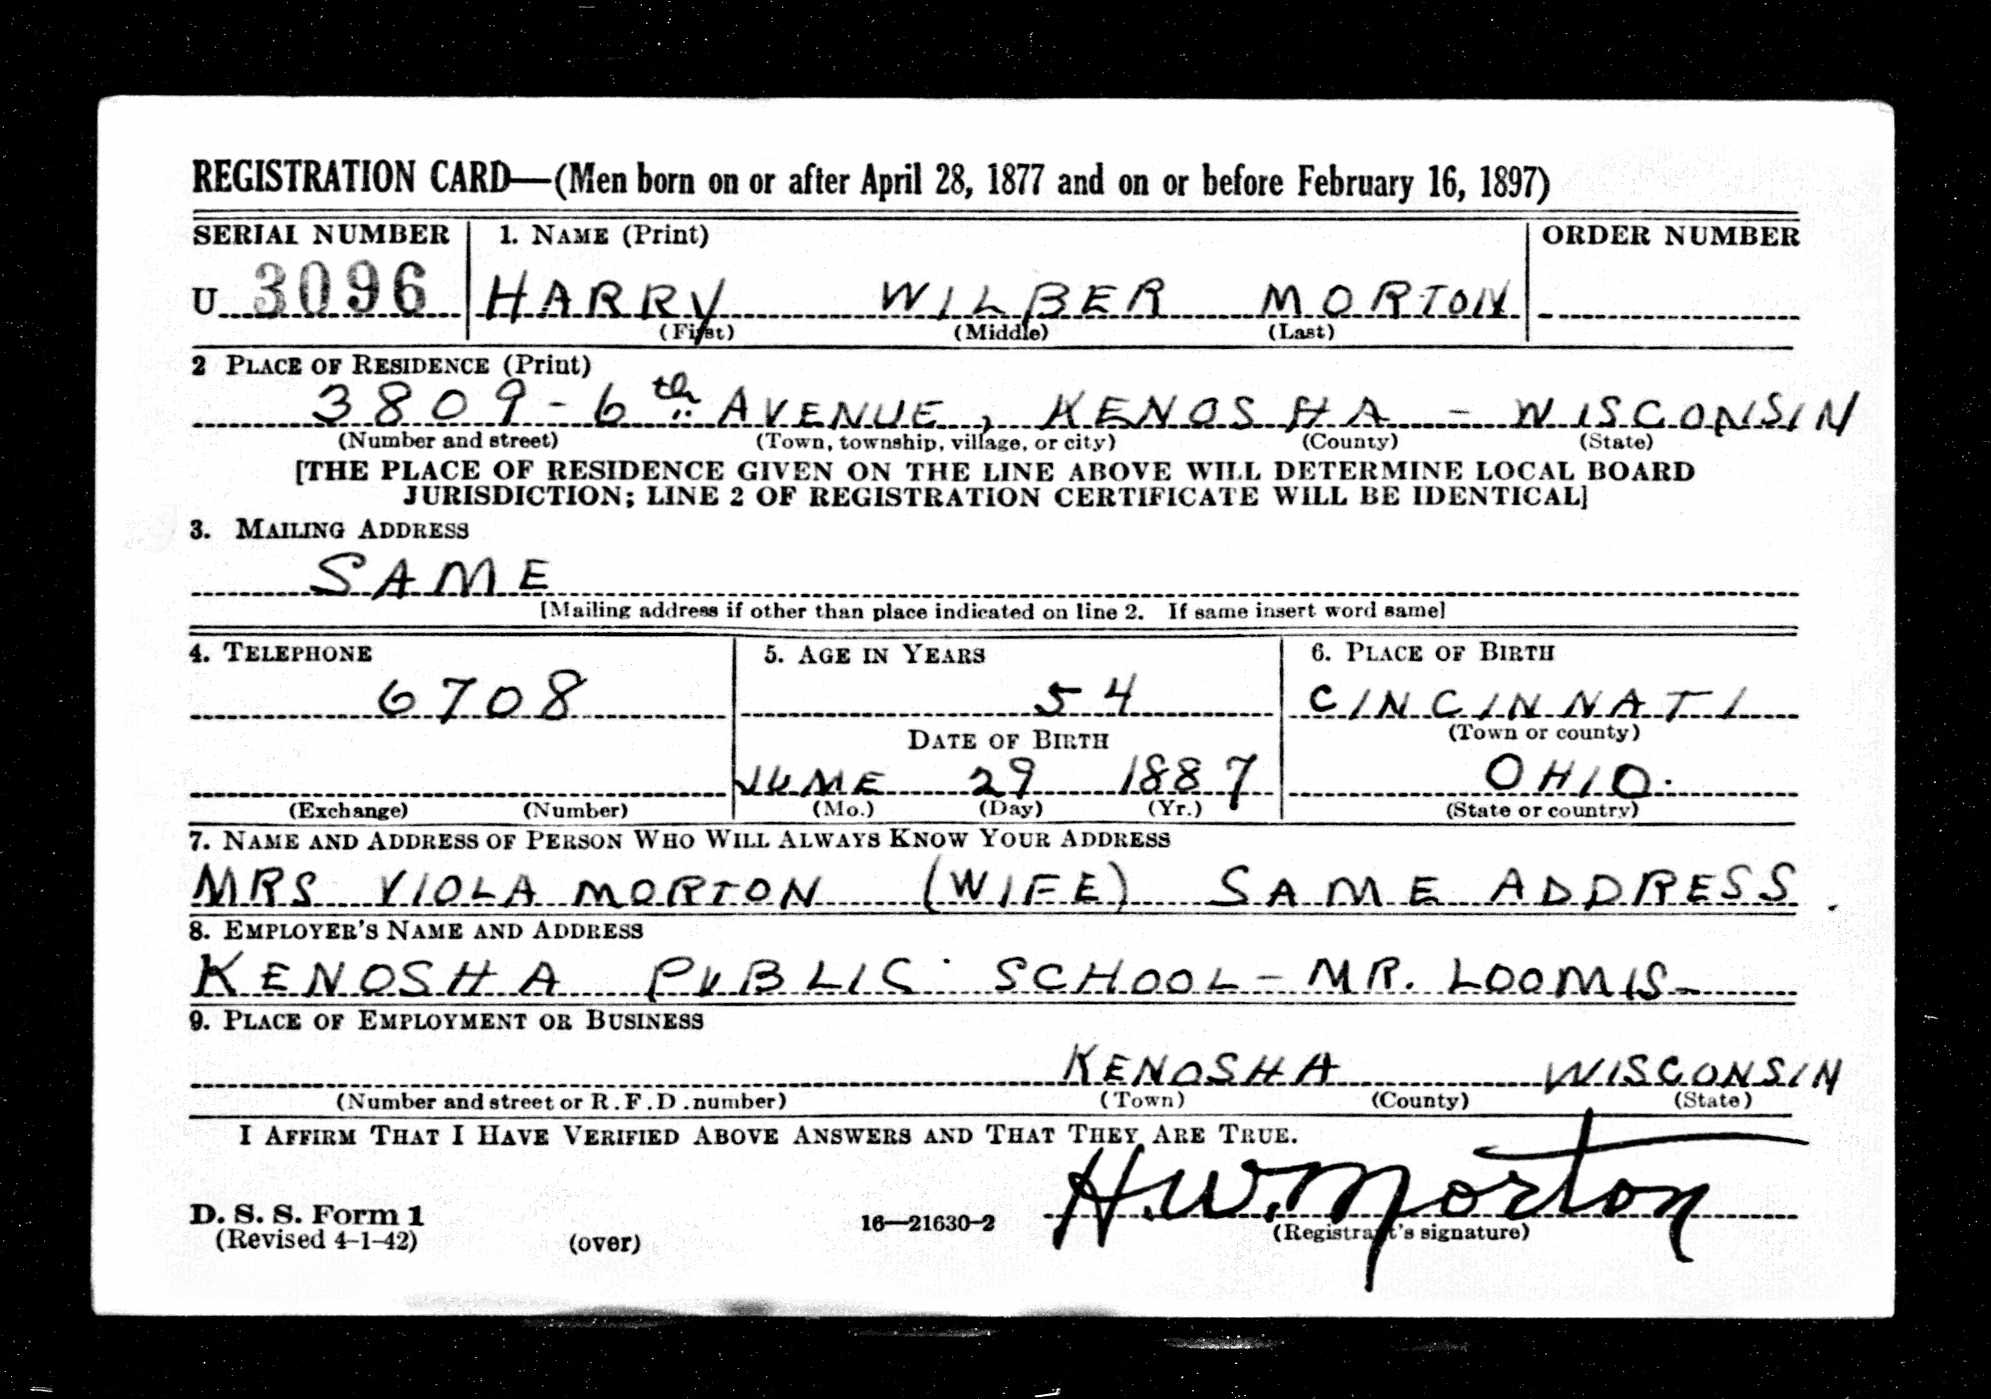 REGISTRATION CARD—(Men born on or after April 28, 1877 and on or before February 16, 1897)
SERIAL NUMBER 1. NAME (Print) ORDER NUMBER
U 3096 HARRY WILBER MORTON
(First) (Middle) (Last)
2 PLACE OF RESIDENCE (Print)
3809 - 6th AVENUE, KENOSHA - WISCONSIN
(Number and street) (Town, township, village, or city) (County) (State)
[THE PLACE OF RESIDENCE GIVEN ON THE LINE ABOVE WILL DETERMINE LOCAL BOARD
JURISDICTION; LINE 2 OF REGISTRATION CERTIFICATE WILL BE IDENTICAL]
3. MAILING ADDRESS
SAME
[Mailing address if other than place indicated on line 2. If same insert word same]
4. TELEPHONE 5. AGE IN YEARS 6. PLACE OF BIRTH
6708 54 CINCINNATI
DATE OF BIRTH (Town or county)
JUNE 29 1887 OHIO.
(Exchange) (Number) (Mo.) (Day) (Yr.) (State or country)
7. NAME AND ADDRESS OF PERSON WHO WILL ALWAYS KNOW YOUR ADDRESS
MRS VIOLA MORTON (WIFE) SAME ADDRESS.
8. EMPLOYER'S NAME AND ADDRESS
KENOSHA PUBLIC SCHOOL - MR. LOOMIS -
9. PLACE OF EMPLOYMENT OR BUSINESS
KENOSHA WISCONSIN
(Number and street or R.F.D. number) (Town) (County) (State)
I AFFIRM THAT I HAVE VERIFIED ABOVE ANSWERS AND THAT THEY ARE TRUE.
H.W. Morton
D. S. S. Form 1 16—21630-2 (Registrant's signature)
(Revised 4-1-42) (over)